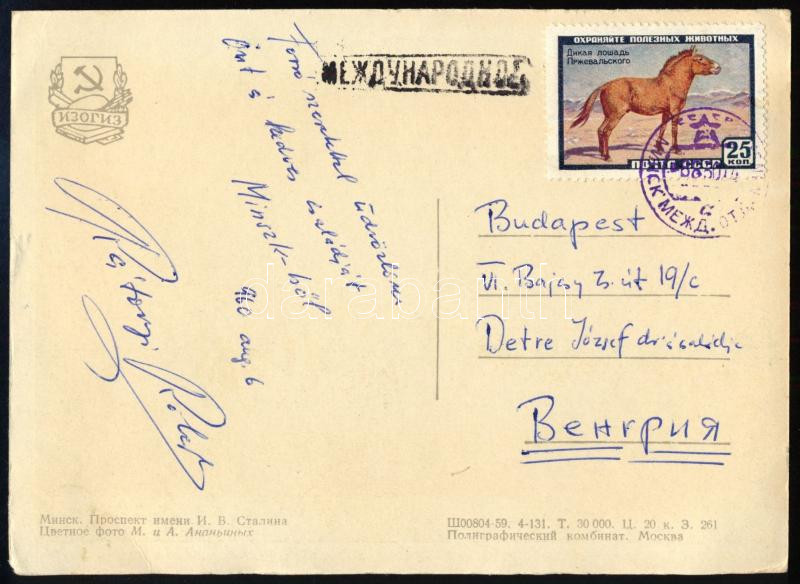 ИЗОГИЗ
МЕЖДУНАРОДНОЕ
ОХРАНЯЙТЕ ПОЛЕЗНЫХ ЖИВОТНЫХ
Дикая лошадь
Пржевальского
ПОЧТА СССР
25
КОП.
МЕЖД.
szeretettel üdvözlöm
Önt és kedves családját
Minszk-ből
960 aug. 6
Róbert
Budapest
VI. Bajcsy Zs. út 19/c
Detre József dr és családja
Венгрия
darabanth
Минск. Проспект имени И. В. Сталина
Цветное фото М. и А. Ананьиных
Ш00804-59. 4-131. Т. 30 000. Ц. 20 к. З. 261
Полиграфический комбинат. Москва